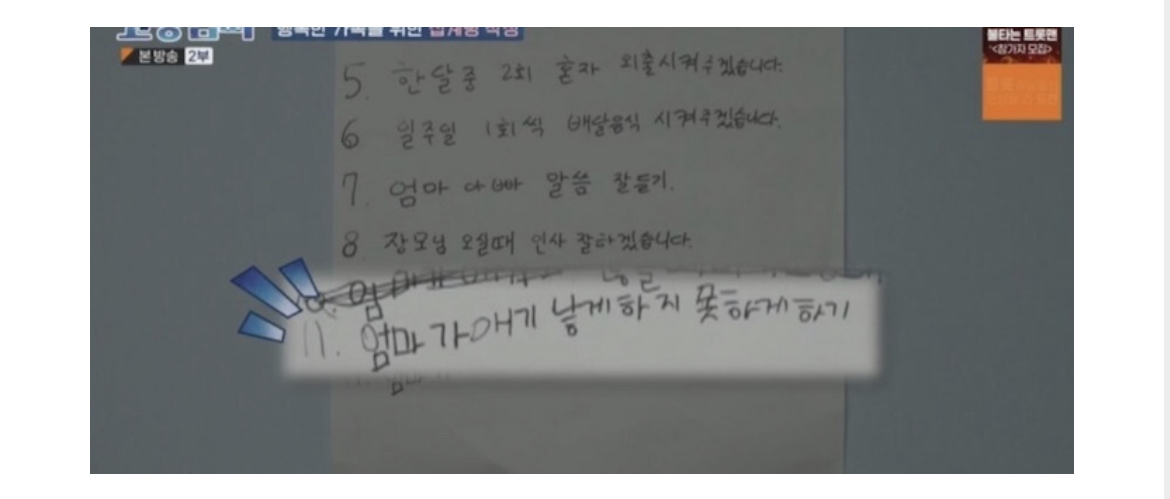 고딩엄빠
행복한 가족을 위한 십계명 작성
본방송 2부
불타는 트롯맨
<참가자 모집>
5. 한달중 2회 혼자 외출시켜주겠습니다.
6 일주일 1회씩 배달음식 시켜주겠습니다.
7. 엄마 아빠 말씀 잘듣기.
8 장모님 오실때 인사 잘하겠습니다.
11. 엄마가애기 낳게하지 못하게하기